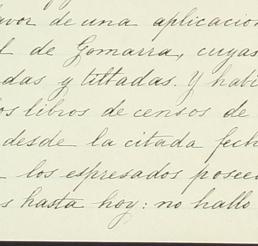 avor de una aplicacion
l de Gomarra, cuyas
das y tittadas. Y habi
os libros de censos de
desde la citada fech
los espresados poseed
s hasta hoy: no hallo